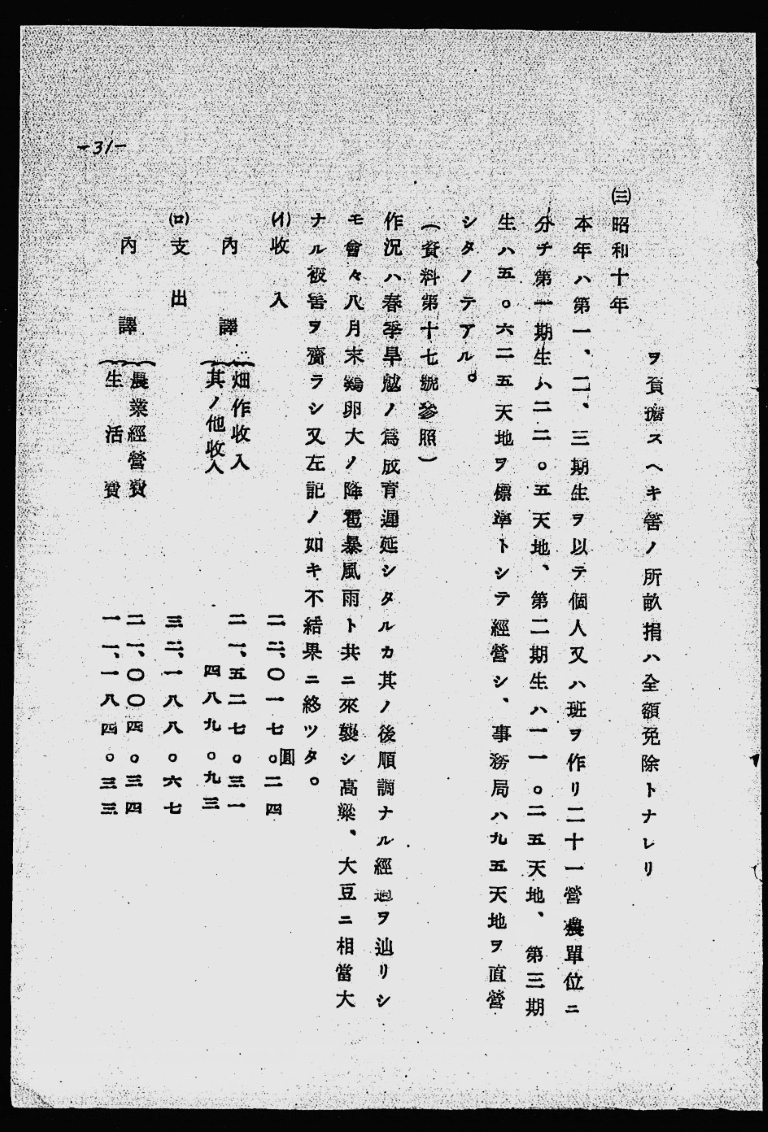 -31-
ヲ負擔スヘキ筈ノ所畝捐ハ全額免除トナレリ
㈢昭和十年
本年ハ第一、二、三期生ヲ以テ個人又ハ班ヲ作リ二十一營農單位ニ
分チ第一期生ハ二二。五天地、第二期生ハ一一。二五天地、第三期
生ハ五。六二五天地ヲ標準トシテ經營シ、事務局ハ九五天地ヲ直營
シタノテアル。
(資料第十七號參照)
作況ハ春季旱魃ノ爲成育遲延シタルカ其ノ後順調ナル經過ヲ辿リシ
モ會々八月末鷄卵大ノ降雹暴風雨ト共ニ來襲シ高粱、大豆ニ相當大
ナル被害ヲ齎ラシ又左記ノ如キ不結果ニ終ツタ。
(イ)收入 二二、〇一七。二四圓
內譯 畑作收入 二一、五二七。三一
其ノ他收入 四八九。九三
(ロ)支出 三二、一八八。六七
內譯 農業經營費 二一、〇〇四。三四
生活費 一一、一八四。三三